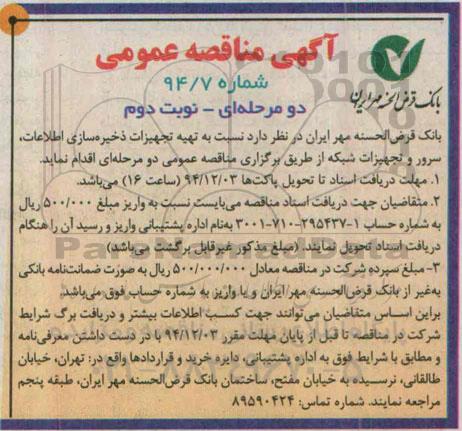 آگهی مناقصه عمومی
شماره ۹۴/۷
دو مرحله‌ای - نوبت دوم
بانک قرض‌الحسنه مهر ایران
بانک قرض‌الحسنه مهر ایران در نظر دارد نسبت به تهیه تجهیزات ذخیره‌سازی اطلاعات،
سرور و تجهیزات شبکه از طریق برگزاری مناقصه عمومی دو مرحله‌ای اقدام نماید.
۱. مهلت دریافت اسناد تا تحویل پاکت‌ها ۹۴/۱۲/۰۳ (ساعت ۱۶) می‌باشد.
۲. متقاضیان جهت دریافت اسناد مناقصه می‌بایست نسبت به واریز مبلغ ۵۰۰/۰۰۰ ریال
به شماره حساب ۱-۲۹۵۴۳۷-۷۱۰-۳۰۰۱ به‌نام اداره پشتیبانی واریز و رسید آن را هنگام
دریافت اسناد تحویل نمایند. (مبلغ مذکور غیرقابل برگشت می‌باشد)
۳- مبلغ سپرده شرکت در مناقصه معادل ۵۰۰/۰۰۰/۰۰۰ ریال به صورت ضمانت‌نامه بانکی
به‌غیر از بانک قرض‌الحسنه مهر ایران و یا واریز به شماره حساب فوق می‌باشد.
براین اساس متقاضیان می‌توانند جهت کسب اطلاعات بیشتر و دریافت برگ شرایط
شرکت در مناقصه تا قبل از پایان مهلت مقرر ۹۴/۱۲/۰۳ با در دست داشتن معرفی‌نامه
و مطابق با شرایط فوق به اداره پشتیبانی، دایره خرید و قراردادها واقع در: تهران، خیابان
طالقانی، نرسیده به خیابان مفتح، ساختمان بانک قرض‌الحسنه مهر ایران، طبقه پنجم
مراجعه نمایند. شماره تماس: ۸۹۵۹۰۴۲۴